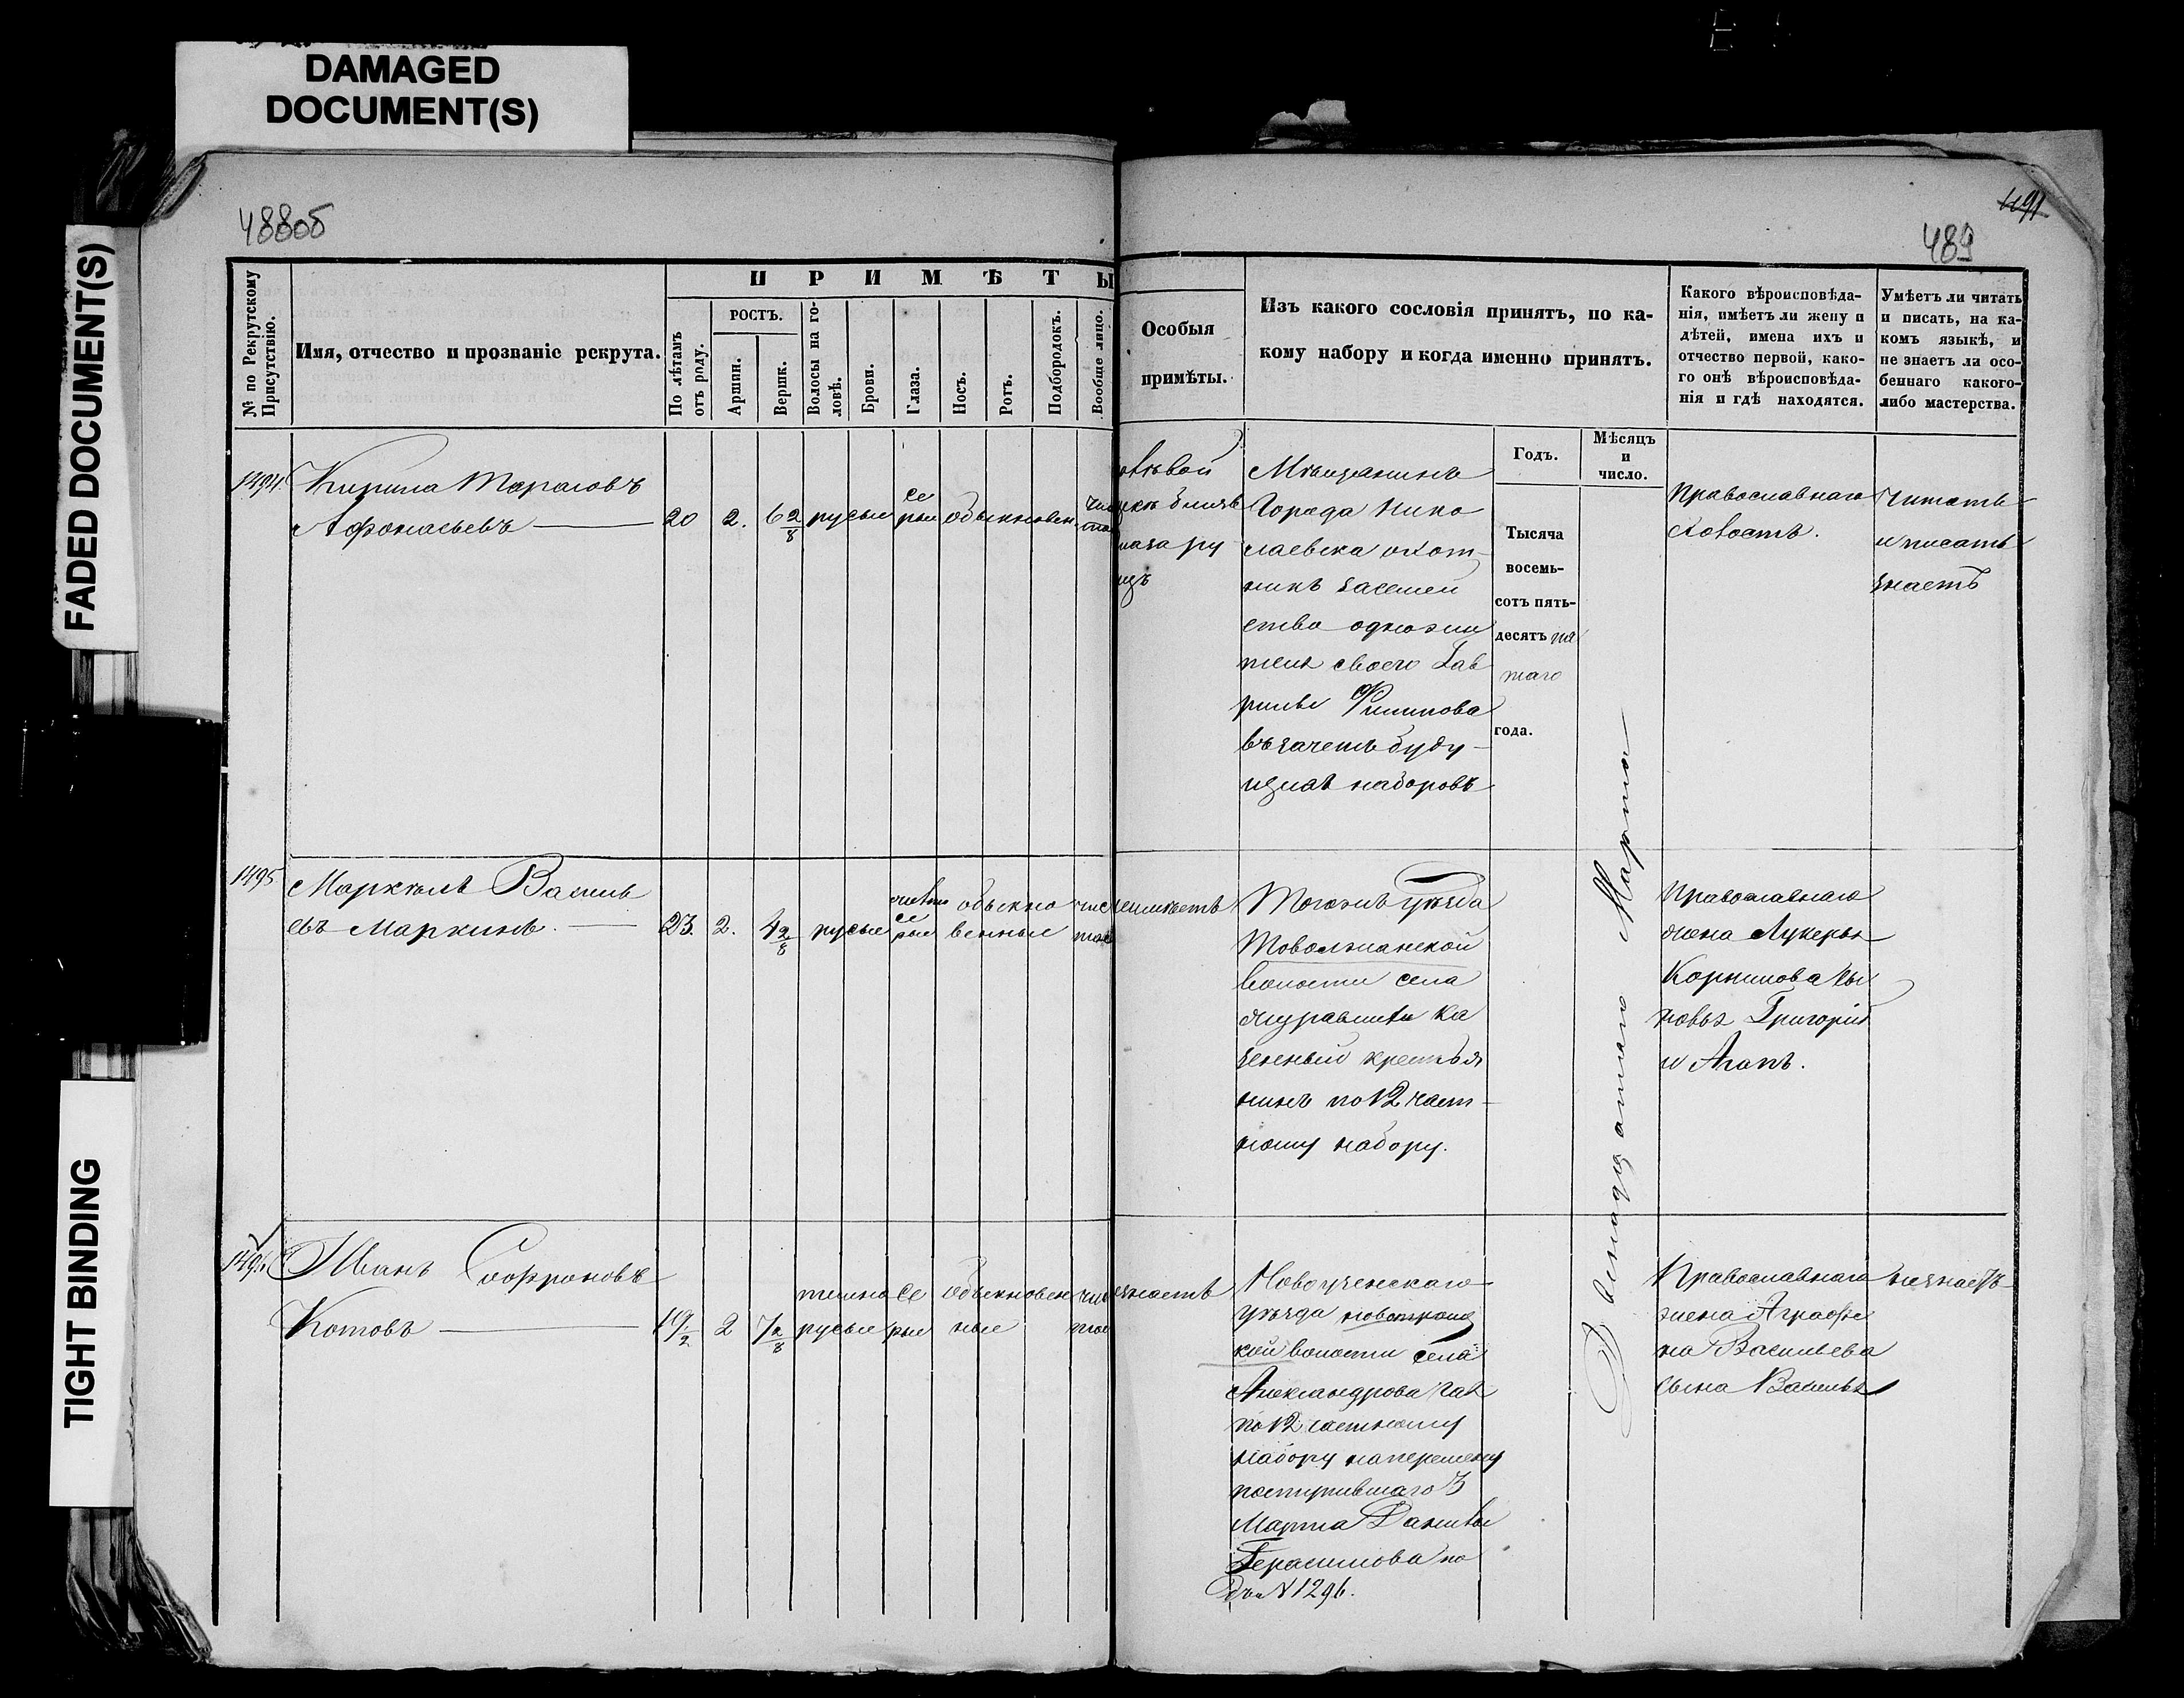 DAMAGED
DOCUMENT(S)
FADED DOCUMENT(S)
TIGHT BINDING
488об
489
№ по Рекрутскому
Присутствію.
Имя, отчество и прозваніе рекрута.
ПРИМѢТЫ
По лѣтамъ
отъ роду.
РОСТЪ.
Аршин.
Вершк.
Волосы на го-
ловѣ.
Брови.
Глаза.
Носъ.
Ротъ.
Подбородокъ.
Вообще лицо.
Особыя
примѣты.
Изъ какого сословія принятъ, по ка-
кому набору и когда именно принятъ.
Какого вѣроисповѣда-
нія, имѣетъ ли жену и
дѣтей, имена ихъ и
отчество первой, како-
го онѣ вѣроисповѣда-
нія и гдѣ находятся.
Умѣетъ ли читать
и писать, на ка-
комъ языкѣ, и
не знаетъ ли осо-
беннаго какого-
либо мастерства.
Годъ.
Мѣсяцъ
и
число.
1494.
Кирила Тарасовъ
Афонасьевъ
20
2.
6 2/8
русые
се
рые
обыкновен
Мѣщанинъ
Города Нико
лаевска охот-
никъ засемей
ство
своего Гав
рилы Филипова
въ зачетъ буду-
щихъ наборовъ
Тысяча
восемь-
сотъ пять-
десятъ пя
таго
года.
Двенадцатаго Марта
Православнаго
холостъ.
Читать
и писать
знаетъ
1495
Маркелъ Василь
евъ Маркинъ.
23.
2.
4 2/8
русые
се
рые
обыкно
венные
чис
тое
Тогожъ уѣзда
волости села
Журавлихи ка
зенный крестья
нинъ по 12 част-
ному набору.
Православнаго
жена Лукерья
Корнилова сы
новья Григорій
и Агапъ.
1496
Иванъ Софроновъ
Котовъ
19 1/2
2
7 2/8
темно
русые
се
рые
обыкновен
ные
чис
тое
Новоузенскаго
уѣзда
кой волости села
Александрова Гая
по 12 частному
набору наперемену
поступившаго 3
Марта Данилы
Герасимова по
№ 1296.
Православнаго
жена Аграфе
на Васильева
сына Василья
незнаетъ